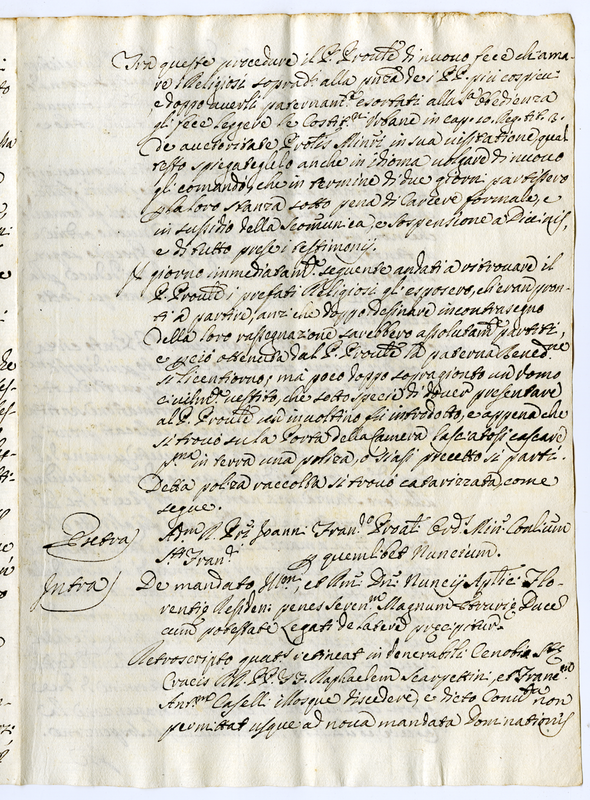 Tra queste procedure il P. Prou.le di nuovo fece chiama-
re i Religiosi soprad.i alla pñza de i PP. più cospicui
e doppo averli paternam.te esortati alla S.ta obedienza
gli fece leggere le Costit.ni Urbane in cap. 10.
De auctoritate Prolis Minri in sua visitatione, qual
testo spiegateglelo anche in idioma volgare di nuovo
gli comandò, che in termine di due giorni partissero
p la loro stanza sotto pena di Carcere formale, e
in sussidio della Scomunica, e Sospensione a Divinis,
e di tutto prese i testimonij.
Il giorno immediatam.te seguente andati a ritrovare il
P. Prou.le i prefati Religiosi gli esposero, ch'eran pron-
ti a partire, anzi che doppo desinare in contrasegno
della loro rassegnazione sarebbero assolutam.te partiti,
e p ciò ottenuta dal P. Prou.le la paterna bened.ne
si licentiorno; mà poco doppo sopragionto un Uomo
civilm.te vestito, che sotto specie di dover presentare
al P. Prou.le un involtino fu introdotto, e appena che
si trovò su la Porta della Camera lasciatosi cascare
p.ma in terra una poliza, o siasi precetto si partì.
Detta poliza raccolta si trovò catarizzata, come
segue.
Extra) Adm. R. Pri Joanni Fran.co Proali Ord. Min. Con.lium
S.ti Fran.ci
p quemlibet Nuncium.
Intra) De mandato Ill.mi, et Rmi Dni Nuncij Aplici Flo-
rentię Residen. penes Seren.m Magnum Etrurię Ducẽ
cum potestate Legati de Latere pręcipitur
Retroscripto quat.s retineat in venerabili Cenobio S.tę
Crucis RR. PP. Raphaelem Scarpettini, et Franc.um
Ant.m Caselli illosque discedere, e dicto Conv.tu non
permittat usque ad nova mandata Dominationis